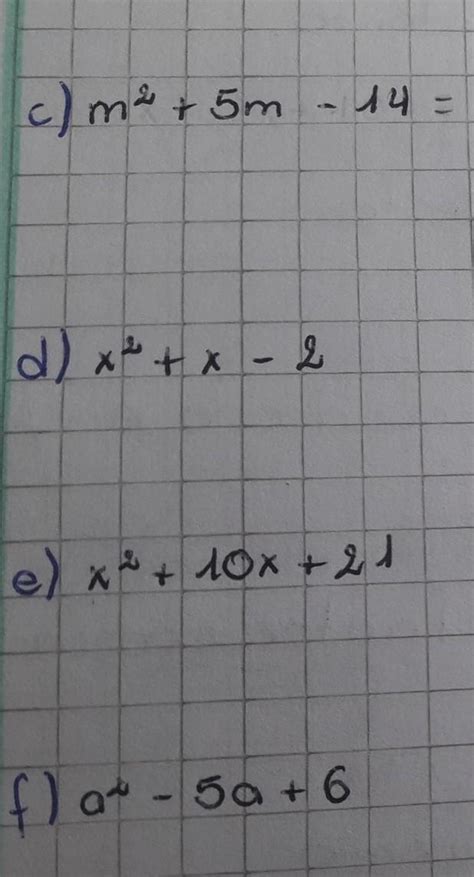 c) m² + 5m - 14 =
d) x² + x - 2
e) x² + 10x + 21
f) a² - 5a + 6